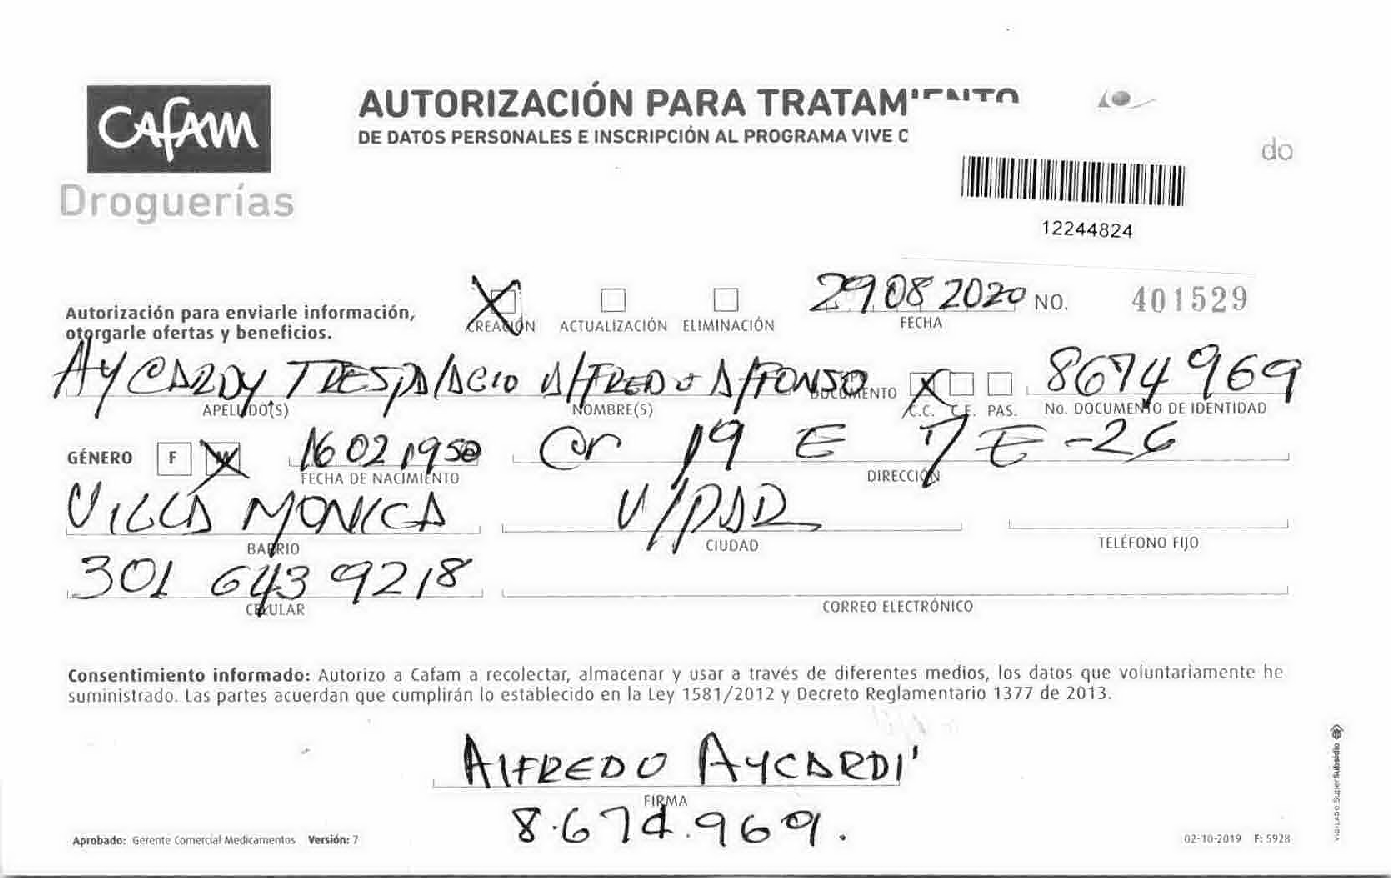 Cafam
Droguerías
AUTORIZACIÓN PARA TRATAMIENTO
DE DATOS PERSONALES E INSCRIPCIÓN AL PROGRAMA VIVE C
do
12244824
Autorización para enviarle información,
otorgarle ofertas y beneficios.
CREACIÓN ACTUALIZACIÓN ELIMINACIÓN
29 08 2020 NO. 401529
FECHA
AYCARDY TRESPALACIO AlFREDO AlFONSO DOCUMENTO 8674969
APELLIDO(S) NOMBRE(S) C.C. C.E. PAS. No. DOCUMENTO DE IDENTIDAD
GÉNERO F M 16 02 1950 Cr 19 E 7 E - 26
FECHA DE NACIMIENTO DIRECCIÓN
VILLA MONICA V/PAR
BARRIO CIUDAD TELÉFONO FIJO
301 643 9218
CELULAR CORREO ELECTRÓNICO
Consentimiento informado: Autorizo a Cafam a recolectar, almacenar y usar a través de diferentes medios, los datos que voluntariamente he
suministrado. Las partes acuerdan que cumplirán lo establecido en la Ley 1581/2012 y Decreto Reglamentario 1377 de 2013.
AlFREDO AYCARDI
FIRMA
8.674.969.
Aprobado: Gerente Comercial Medicamentos Versión: 7
02-10-2019 F: 5928
VIGILADO SuperSubsidio